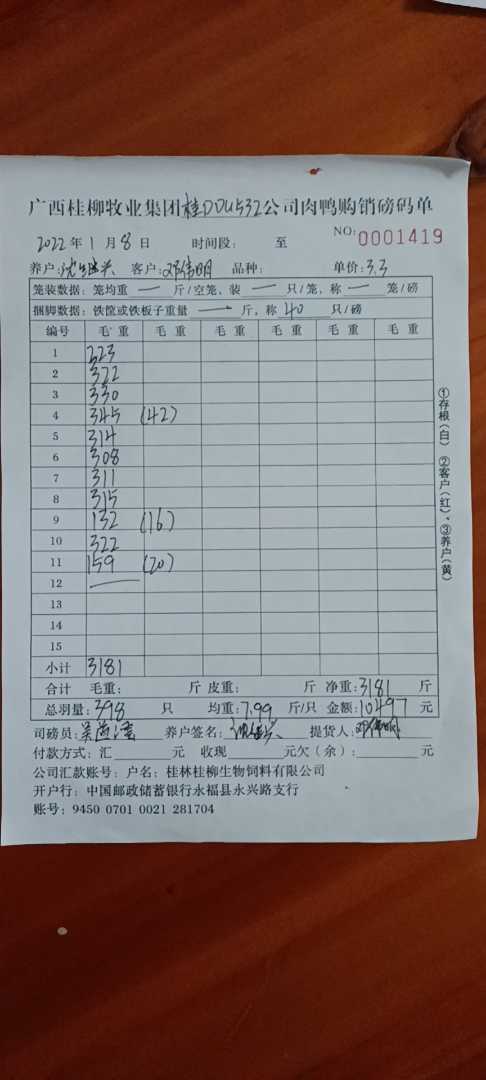 广西桂柳牧业集团桂DDU532公司肉鸭购销磅码单
2022年1月8日 时间段: 至 NO:0001419
养户: 客户:邓伟明 品种: 单价:3.3
笼装数据:笼均重 — 斤/空笼,装 — 只/笼,称 — 笼/磅
捆脚数据:铁筐或铁板子重量 — 斤,称 40 只/磅
编号 毛重 毛重 毛重 毛重 毛重 毛重
1 223
2 322
3 330
4 345 (42)
5 314
6 308
7 311
8 315
9 132 (16)
10 322
11 159 (20)
12 —
13
14
15
小计 3181
合计 毛重: 斤 皮重: 斤 净重:3181 斤
总羽量:398 只 均重:7.99 斤/只 金额:10497 元
司磅员: 养户签名: 提货人:邓伟明
付款方式:汇 元 收现 元欠(余): 元
公司汇款账号:户名:桂林桂柳生物饲料有限公司
开户行:中国邮政储蓄银行永福县永兴路支行
账号:9450 0701 0021 281704
①存根(白) ②客户(红) ③养户(黄)